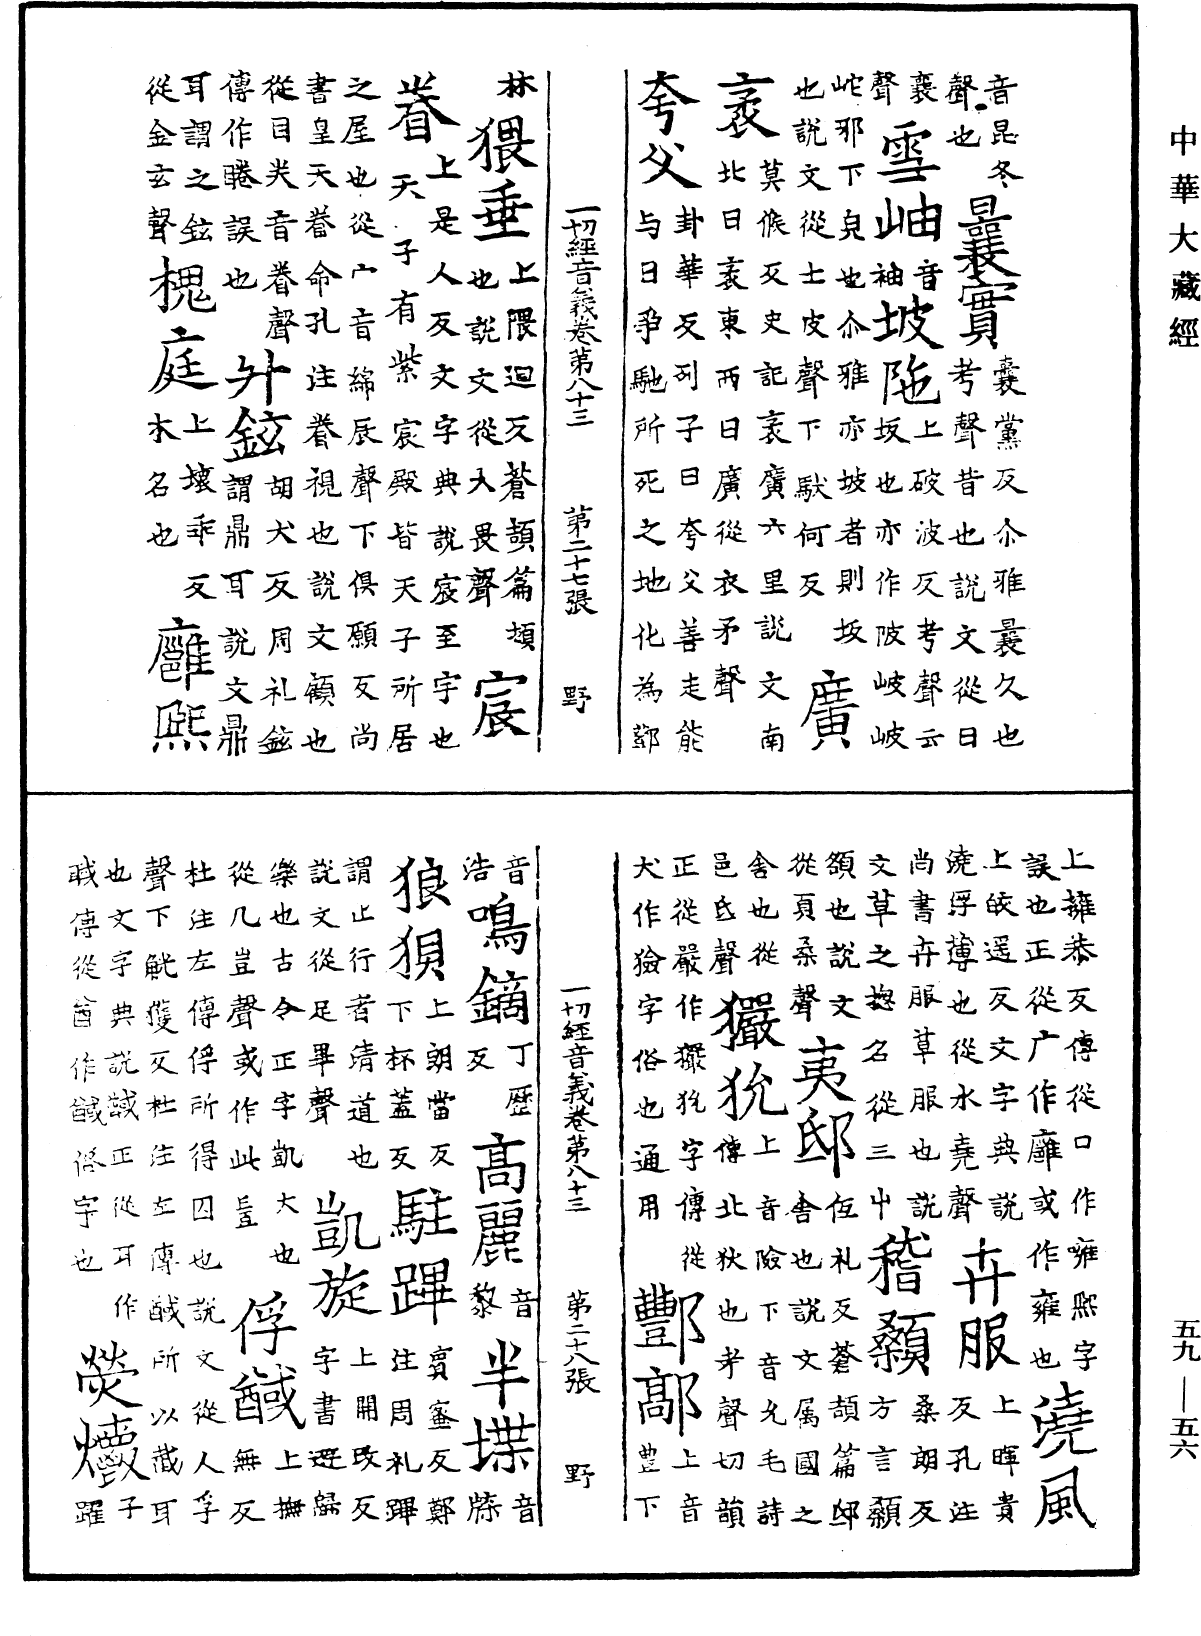 中華大藏經
音昆冬
聲也曩實曩黨反尒雅曩久也
考聲昔也說文從日
襄聲雪岫音袖坡陁上破波反考聲云
坂也亦作陂岥岥
岮邪下皃也尒雅亦坡者則坂
也說文從土皮聲下馱何反廣
袤莫候反史記袤廣六里說文南
北曰袤東西曰廣從衣矛聲
夸父卦華反列子曰夸父善走能
与日爭馳所死之地化為鄧
一切經音義卷第八十三 第二十七張 野
林猥垂上隈迴反蒼頡篇頑
也說文從人畏聲宸
上是人反文字典說宸至字也
眷天子有紫宸殿皆天子所居
之屋也從宀音綿辰聲下俱願反尚
書皇天眷命孔注眷視也說文顧也
從目𢍏音眷聲
傳作睠誤也外鉉胡犬反周礼鉉
謂鼎耳說文鼎
耳謂之鉉
從金玄聲槐庭上壞乖反
木名也廱熙
上擁恭反傳從口作噰熙字
誤也正從广作廱或作雍也澆風
上皎遥反文字典說
澆浮薄也從水堯聲卉服上暉貴
反孔注
尚書卉服草服也說
文草之摠名從三屮稽顙桑朗反
方言顙
額也說文
從頁桑聲夷邸仾礼反蒼頡篇邸
舍也說文属國之
舍也從
邑氐聲玁狁上音險下音允毛詩
傳北狄也考聲切韻
正從嚴作玁狁字傳從
犬作獫字俗也通用酆鄗上音
豐下
一切經音義卷第八十三 第二十八張 野
音
浩鳴鏑丁歷
反高麗音
黎半堞音
牒
狼狽上朗當反
下杯蓋反駐蹕賔蜜反鄭
注周礼蹕
謂止行者清道也
說文從足畢聲凱旋上開改反
字書遊歸
樂也古今正字凱大也
從几豈聲或作此俘馘上撫
無反
杜注左傳俘所得囚也說文從人孚
聲下觥獲反杜注左傳馘所以截耳
也文字典說馘正從耳作
聝傳從首作馘俗字也熒爝子
躍
五九—五六